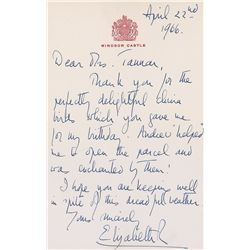 April 22nd
1966.
WINDSOR CASTLE
Dear Mrs. Tannar,
Thank you for the
perfectly delightful China
birds which you gave me
for my birthday! Andrew helped
me to open the parcel and
was enchanted by them!
I hope you are keeping well
in spite of this dreadful weather.
Yours sincerely
Elizabeth R